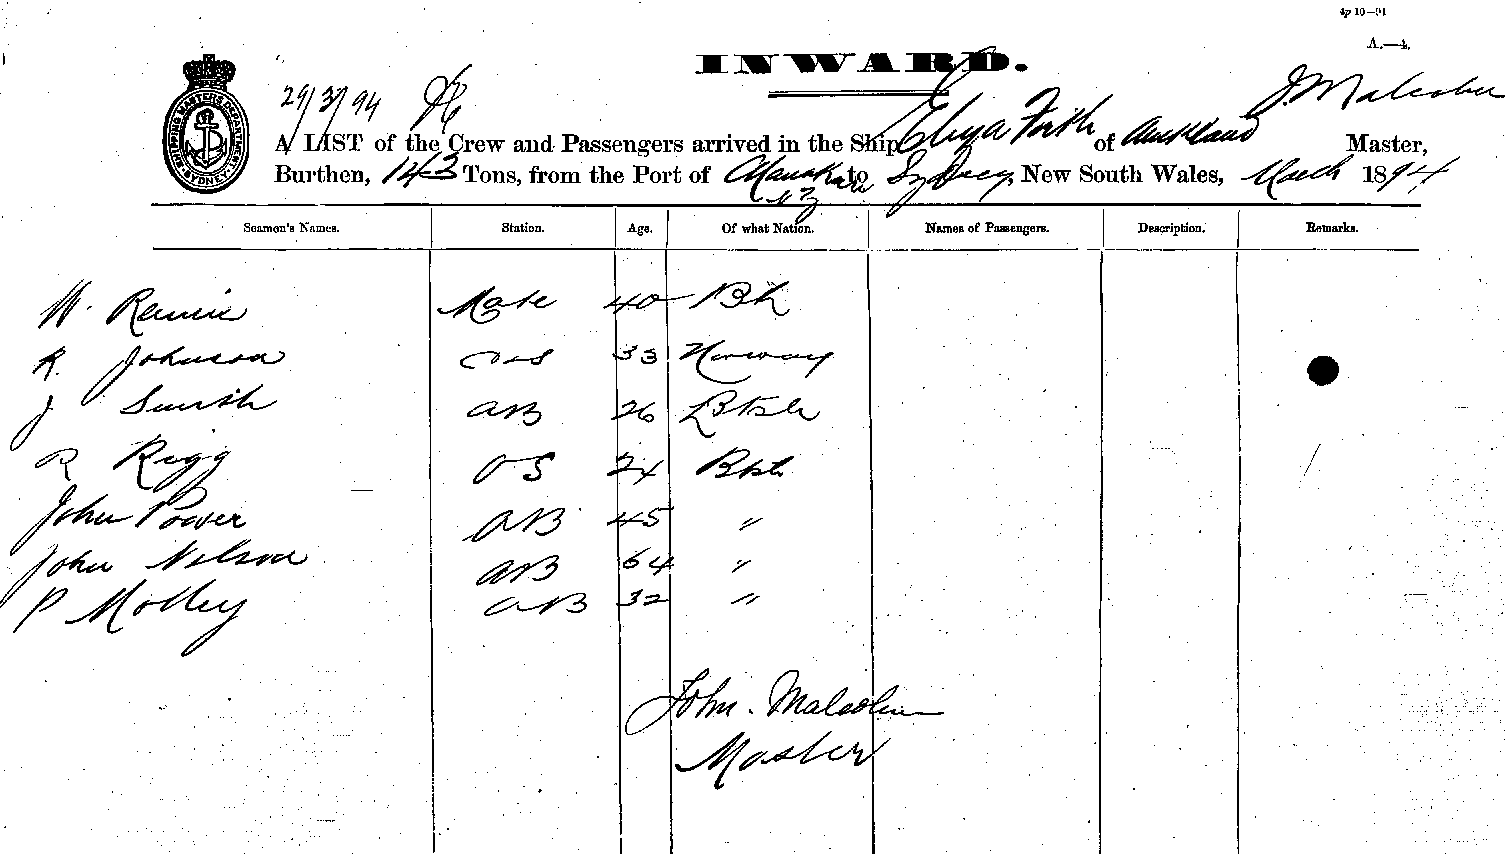 4p 10—91
A.—4.
INWARD.
29/3/94
J. Malcolm
SHIPPING MASTER'S DEPARTMENT SYDNEY
A LIST of the Crew and Passengers arrived in the Ship Eliza Firth of Auckland Master,
Burthen, 143 Tons, from the Port of Manukau N Z to Sydney, New South Wales, March 1894
Seamen's Names. Station. Age. Of what Nation. Names of Passengers. Description. Remarks.
W. Rennie Mate 40 Bh
R. Johnson O S 33 Norway
J Smith AB 26 Btsh
R Rigg OS 24 Btsh
John Power AB 45 "
John Nelson AB 64 "
P Molley AB 32 "
John Malcolm
Master